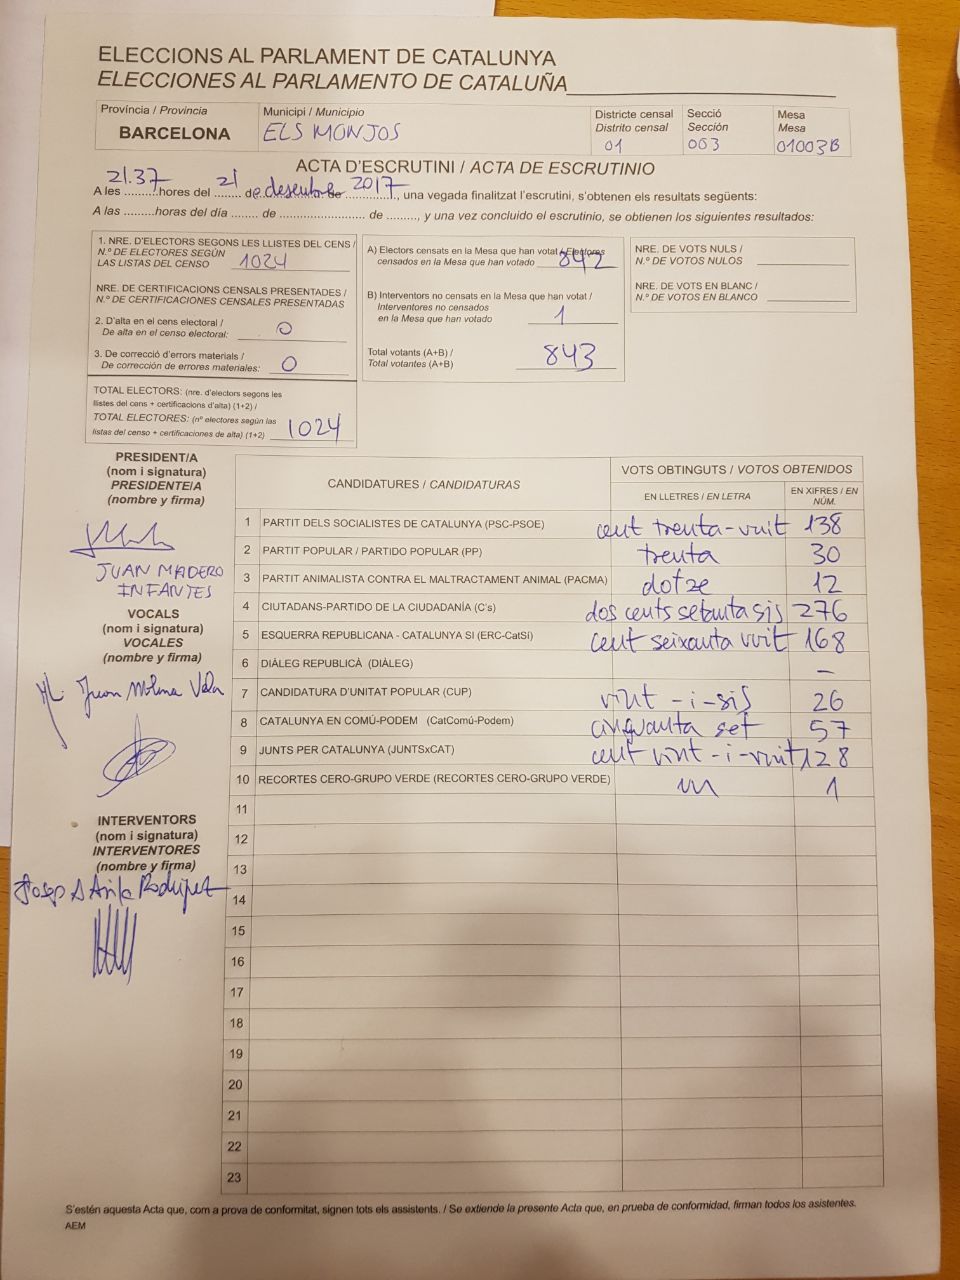 ELECCIONS AL PARLAMENT DE CATALUNYA
ELECCIONES AL PARLAMENTO DE CATALUÑA
Província / Provincia
BARCELONA
Municipi / Municipio
ELS MONJOS
Districte censal
Distrito censal
01
Secció
Sección
003
Mesa
Mesa
01003B
ACTA D'ESCRUTINI / ACTA DE ESCRUTINIO
A les 21.37 hores del 21 de desembre de 2017, una vegada finalitzat l'escrutini, s'obtenen els resultats següents:
A las .........horas del día ....... de ...................... de ........., y una vez concluido el escrutinio, se obtienen los siguientes resultados:
1. NRE. D'ELECTORS SEGONS LES LLISTES DEL CENS /
N.º DE ELECTORES SEGÚN
LAS LISTAS DEL CENSO 1024
NRE. DE CERTIFICACIONS CENSALS PRESENTADES /
N.º DE CERTIFICACIONES CENSALES PRESENTADAS
2. D'alta en el cens electoral /
De alta en el censo electoral: 0
3. De correcció d'errors materials /
De corrección de errores materiales: 0
TOTAL ELECTORS: (nre. d'electors segons les
llistes del cens + certificacions d'alta) (1+2) /
TOTAL ELECTORES: (nº electores según las
listas del censo + certificaciones de alta) (1+2) 1024
A) Electors censats en la Mesa que han votat / Electores
censados en la Mesa que han votado 842
B) Interventors no censats en la Mesa que han votat /
Interventores no censados
en la Mesa que han votado 1
Total votants (A+B) /
Total votantes (A+B) 843
NRE. DE VOTS NULS /
N.º DE VOTOS NULOS
NRE. DE VOTS EN BLANC /
N.º DE VOTOS EN BLANCO
PRESIDENT/A
(nom i signatura)
PRESIDENTE/A
(nombre y firma)
JUAN MADERO
INFANTES
VOCALS
(nom i signatura)
VOCALES
(nombre y firma)
INTERVENTORS
(nom i signatura)
INTERVENTORES
(nombre y firma)
CANDIDATURES / CANDIDATURAS
VOTS OBTINGUTS / VOTOS OBTENIDOS
EN LLETRES / EN LETRA
EN XIFRES / EN NÚM.
1 PARTIT DELS SOCIALISTES DE CATALUNYA (PSC-PSOE) cent trenta-vuit 138
2 PARTIT POPULAR / PARTIDO POPULAR (PP) trenta 30
3 PARTIT ANIMALISTA CONTRA EL MALTRACTAMENT ANIMAL (PACMA) dotze 12
4 CIUTADANS-PARTIDO DE LA CIUDADANÍA (C's) dos cents setanta sis 276
5 ESQUERRA REPUBLICANA - CATALUNYA SI (ERC-CatSí) cent seixanta vuit 168
6 DIÀLEG REPUBLICÀ (DIÀLEG) –
7 CANDIDATURA D'UNITAT POPULAR (CUP) vint-i-sis 26
8 CATALUNYA EN COMÚ-PODEM (CatComú-Podem) cinquanta set 57
9 JUNTS PER CATALUNYA (JUNTSxCAT) cent vint-i-vuit 128
10 RECORTES CERO-GRUPO VERDE (RECORTES CERO-GRUPO VERDE) un 1
11
12
13
14
15
16
17
18
19
20
21
22
23
S'estén aquesta Acta que, com a prova de conformitat, signen tots els assistents. / Se extiende la presente Acta que, en prueba de conformidad, firman todos los asistentes.
AEM